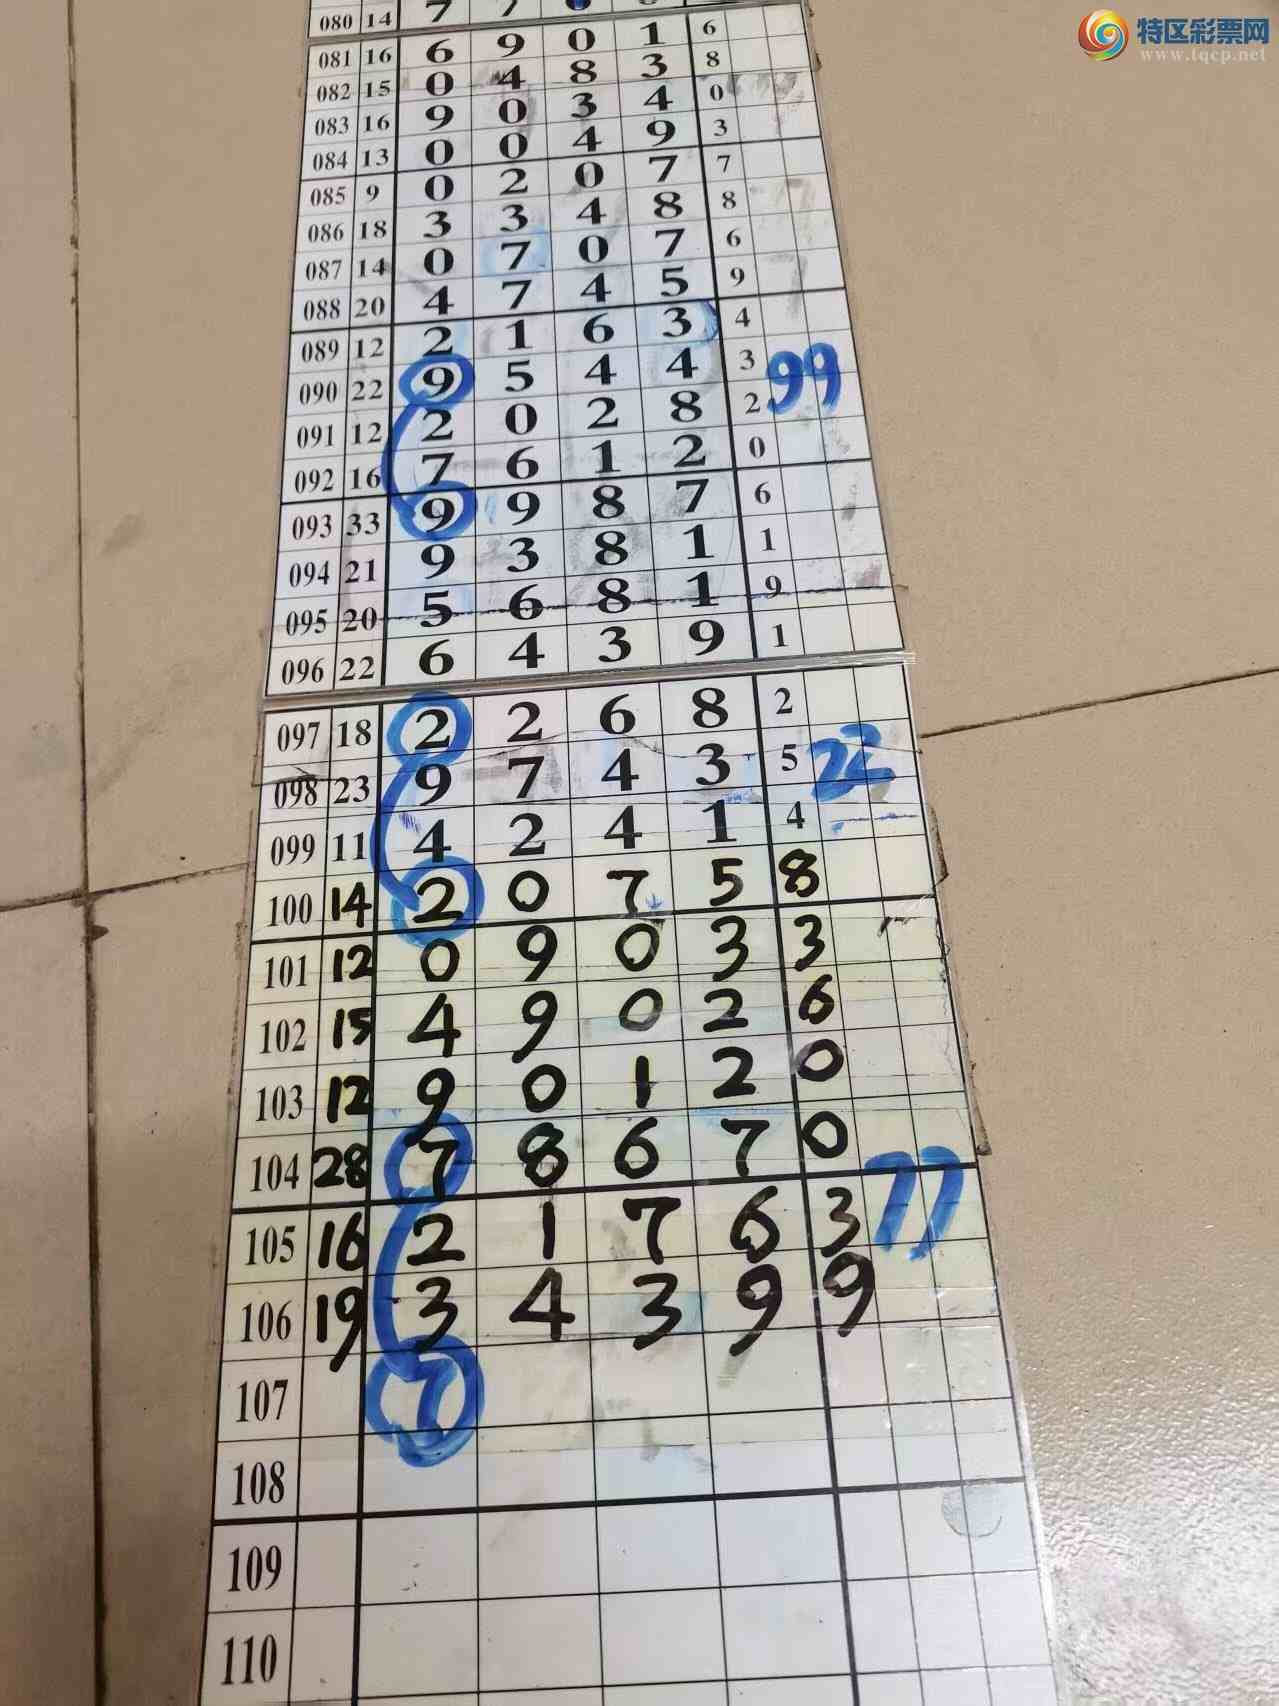 特区彩票网
www.tqcp.net
080 14 7 7
081 16 6 9 0 1 6
082 15 0 4 8 3 8
083 16 9 0 3 4 0
084 13 0 0 4 9 3
085 9 0 2 0 7 7
086 18 3 3 4 8 8
087 14 0 7 0 7 6
088 20 4 7 4 5 9
089 12 2 1 6 3 4
090 22 9 5 4 4 3 99
091 12 2 0 2 8 2
092 16 7 6 1 2 0
093 33 9 9 8 7 6
094 21 9 3 8 1 1
095 20 5 6 8 1 9
096 22 6 4 3 9 1
097 18 2 2 6 8 2
098 23 9 7 4 3 5 22
099 11 4 2 4 1 4
100 14 2 0 7 5 8
101 12 0 9 0 3 3
102 15 4 9 0 2 6
103 12 9 0 1 2 0
104 28 7 8 6 7 0
105 16 2 1 7 6 3 77
106 19 3 4 3 9 9
107 7
108
109
110